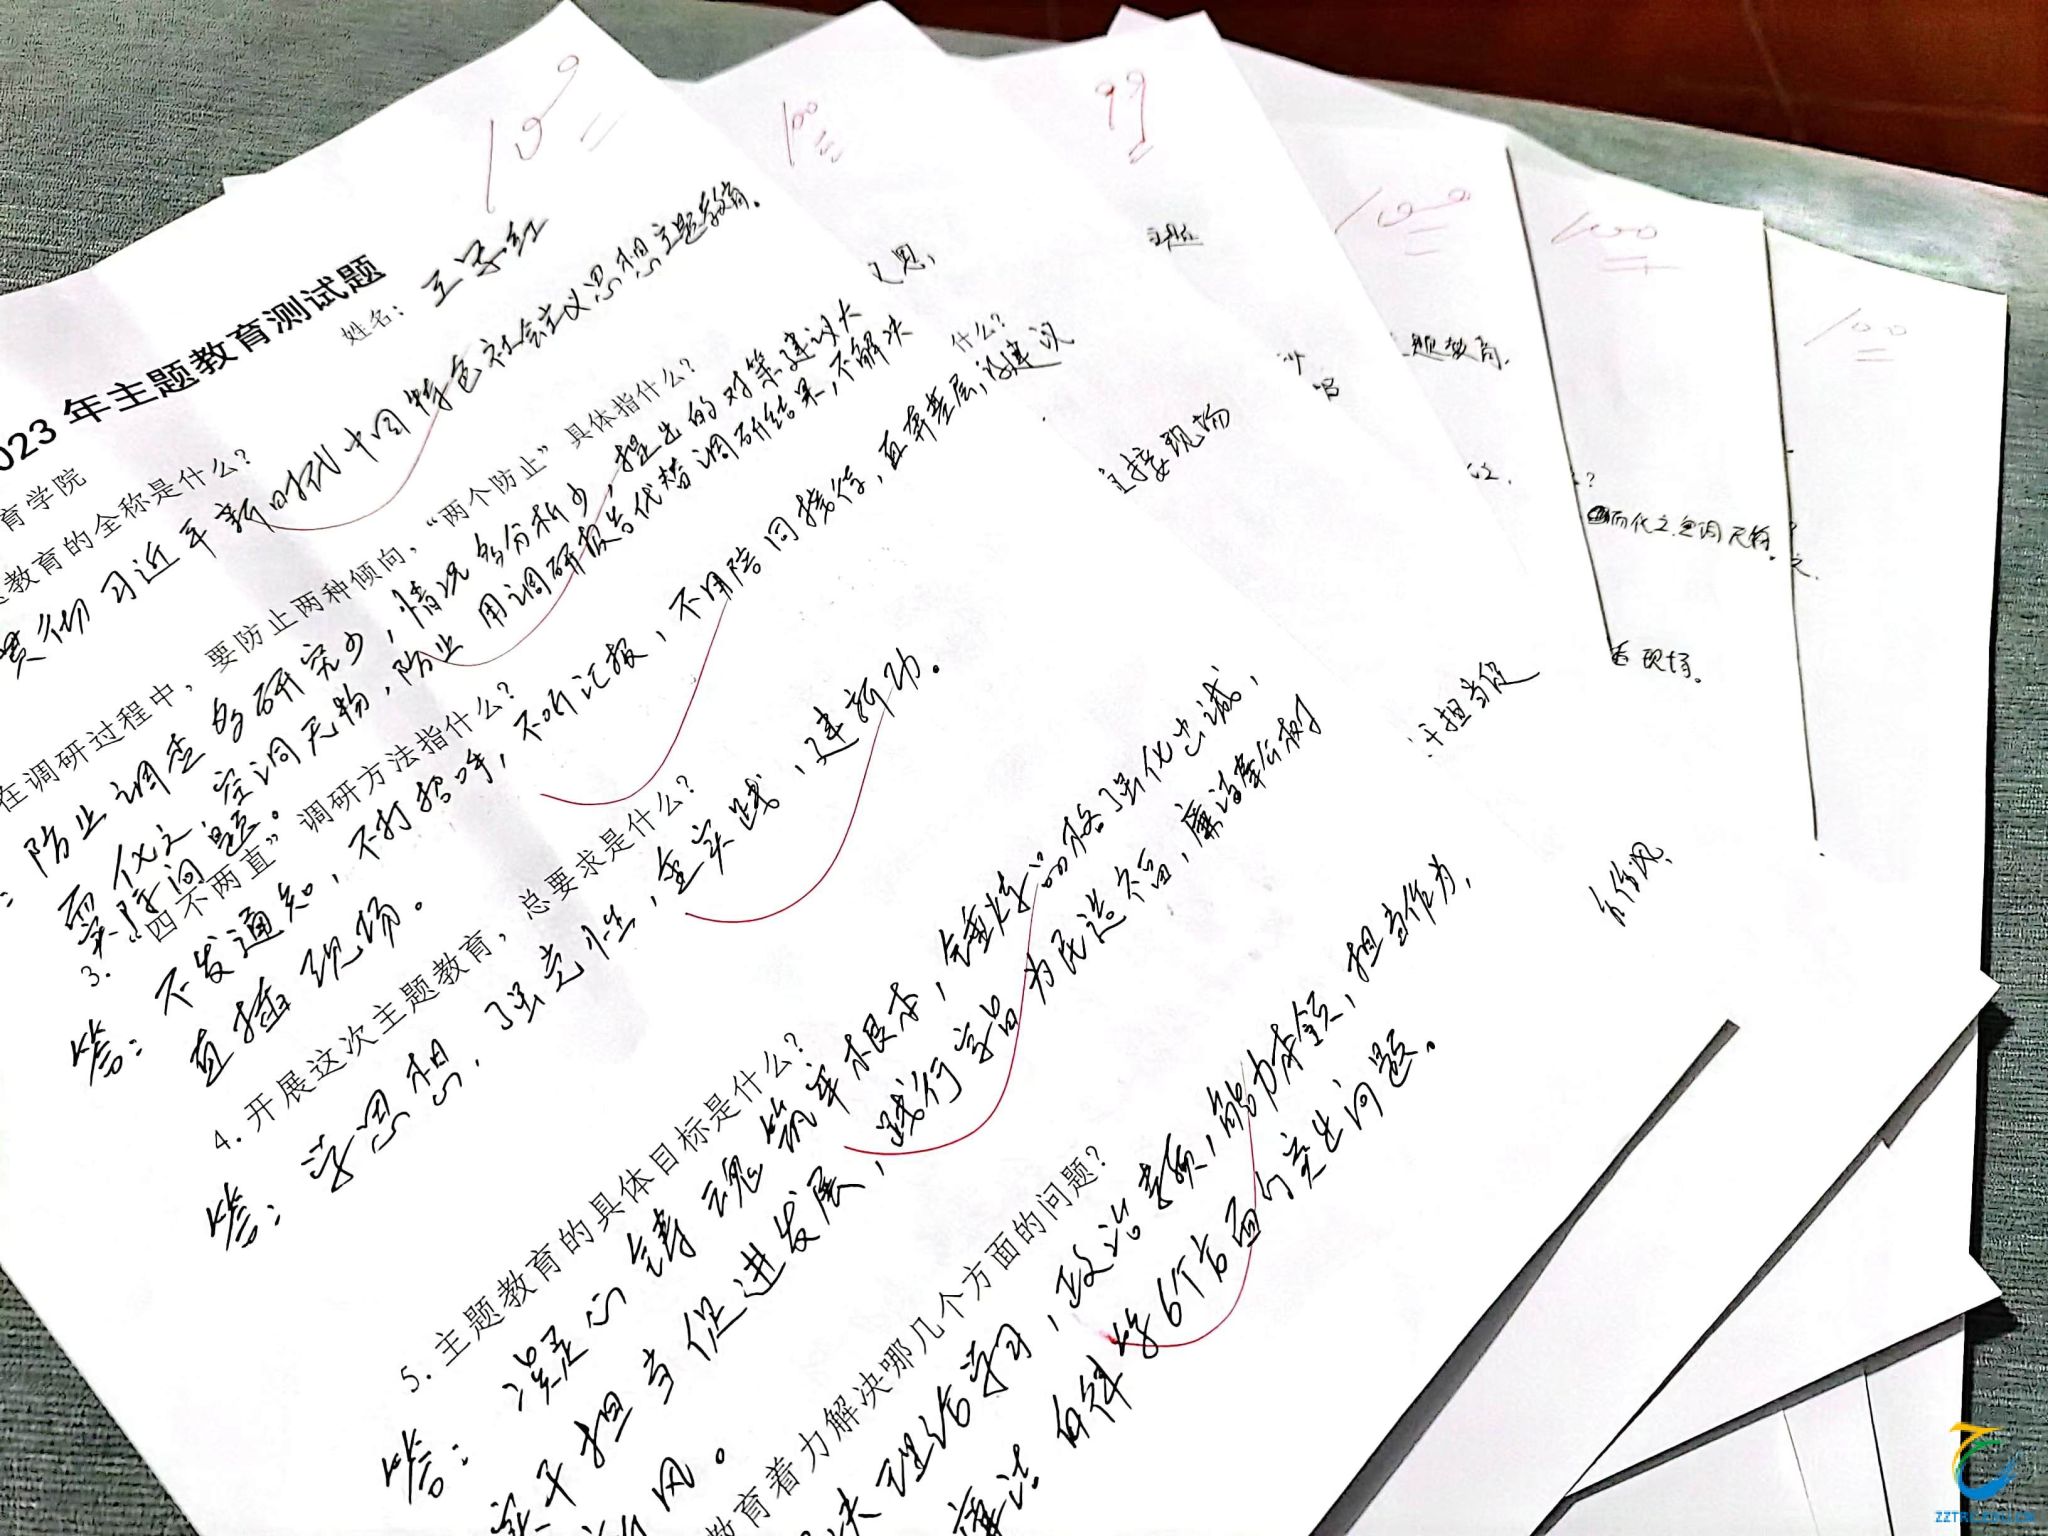 100
023 年主题教育测试题
育学院
姓名：
教育的全称是什么？
贯彻习近平新时代中国特色社会主义思想主题教育。
在调研过程中，要防止两种倾向，“两个防止”具体指什么？
：防止调查多研究少，情况多分析少，提出的对策建议大
而化之，空洞无物，防止用调研报告代替调研结果，不解决
实际问题。
3. “四不两直”调研方法指什么？
答：不发通知，不打招呼，不听汇报，不用陪同接待，直奔基层，
直插现场。
4. 开展这次主题教育，总要求是什么？
答：学思想，强党性，重实践，建新功。
5. 主题教育的具体目标是什么？
答：凝心铸魂筑牢根本，锤炼品格强化忠诚，
实干担当促进发展，践行宗旨为民造福，廉洁奉公树
新风。
教育着力解决哪几个方面的问题？
决理论学习，政治素质，能力本领，担当作为，
廉洁自律等6个方面的突出问题。
100
什么？
没建议
99
主题
直接现场
担当促
作风
100
主题教育。
100
？
而化之，空洞无物。
现场。
100